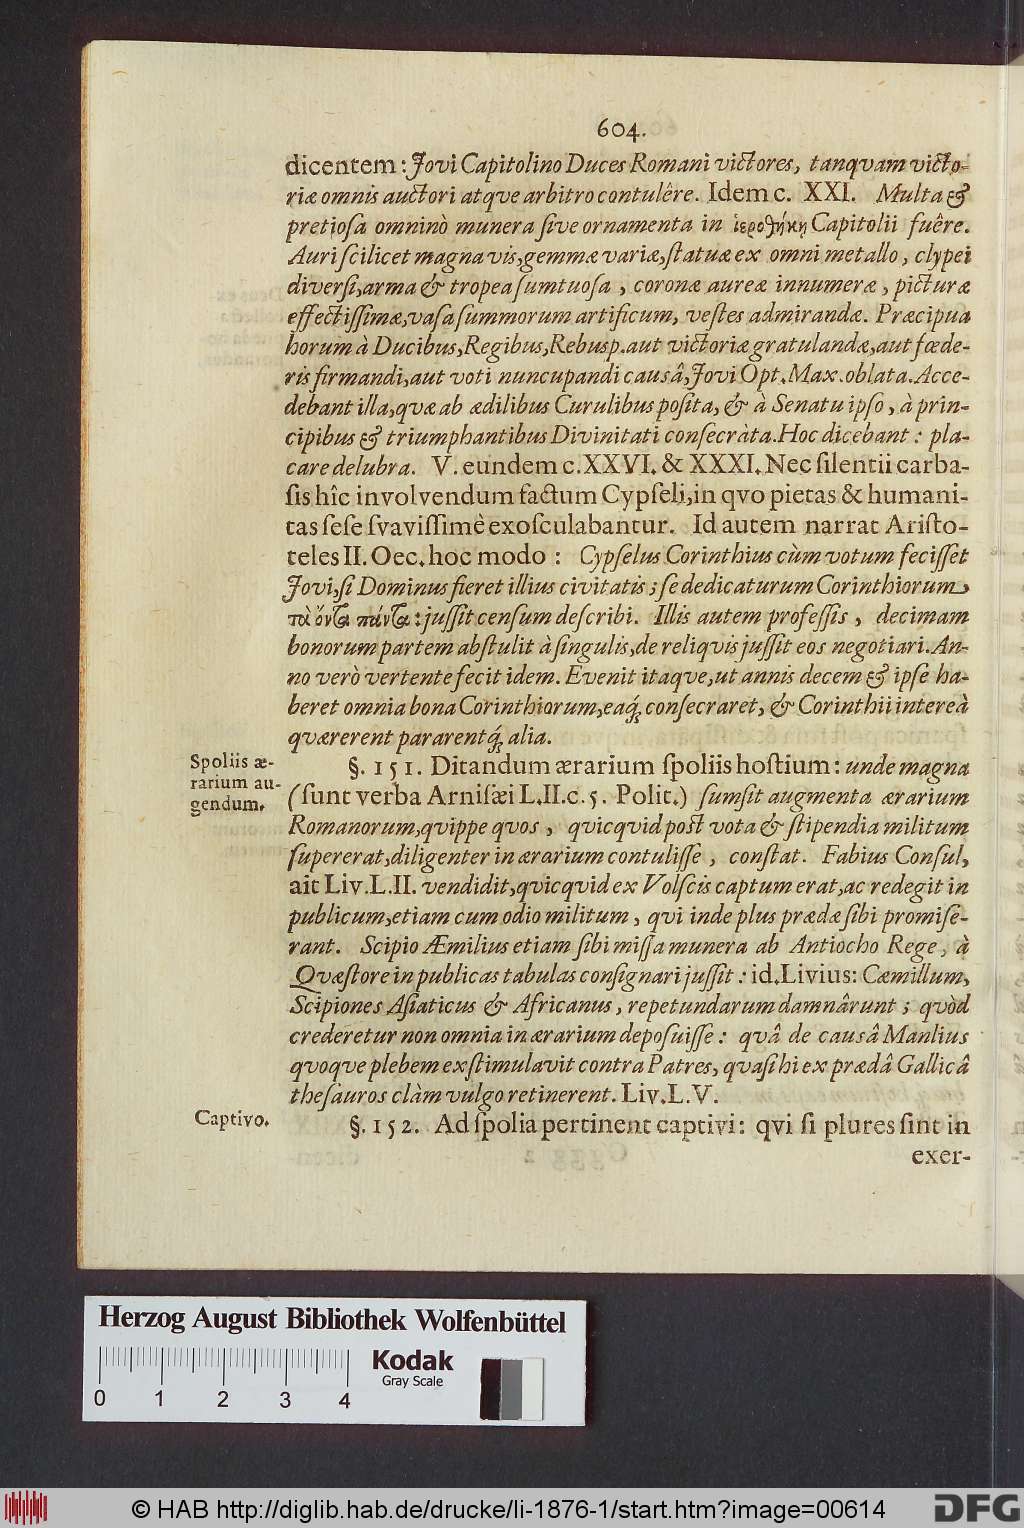 604.
dicentem: Jovi Capitolino Duces Romani victores, tanquam victo-
riæ omnis auctori atqve arbitro contulêre. Idem c. XXI. Multa &
pretioſa omninò munera ſive ornamenta in ἱεροθήκη Capitolii fuêre.
Auri ſcilicet magna vis, gemmæ variæ, ſtatuæ ex omni metallo, clypei
diverſi, arma & tropea ſumtuoſa, coronæ aureæ innumeræ, picturæ
effectiſſimæ, vaſa ſummorum artificum, veſtes admirandæ. Præcipua
horum à Ducibus, Regibus, Rebusp. aut victoriæ gratulandæ, aut fœde-
ris firmandi, aut voti nuncupandi causâ, Jovi Opt. Max. oblata. Acce-
debant illa, quæ ab ædilibus Curulibus poſita, & à Senatu ipſo, à prin-
cipibus & triumphantibus Divinitati conſecràta. Hoc dicebant: pla-
care delubra. V. eundem c. XXVI. & XXXI. Nec ſilentii carba-
ſis hîc involvendum factum Cypſeli, in qvo pietas & humani-
tas ſeſe ſvaviſſimè exoſculabantur. Id autem narrat Ariſto-
teles II. Oec. hoc modo: Cypſelus Corinthius cùm votum feciſſet
Jovi, ſi Dominus fieret illius civitatis; ſe dedicaturum Corinthiorum
τὰ ὄντα πάντα: juſſit cenſum deſcribi. Illis autem profeſſis, decimam
bonorum partem abſtulit à ſingulis, de reliqvis juſſit eos negotiari. An-
no verò vertente fecit idem. Evenit itaqve, ut annis decem & ipſe ha-
beret omnia bona Corinthiorum, eaq́; conſecraret, & Corinthii intereà
quærerent pararentq́; alia.
Spoliis æ-
rarium au-
gendum.
§. 151. Ditandum ærarium ſpoliis hoſtium: unde magna
(ſunt verba Arniſæi L. II. c. 5. Polit.) ſumſit augmenta ærarium
Romanorum, qvippe qvos, qvicqvid poſt vota & ſtipendia militum
ſupererat, diligenter in ærarium contuliſſe, conſtat. Fabius Conſul,
ait Liv. L. II. vendidit, qvicqvid ex Volſcis captum erat, ac redegit in
publicum, etiam cum odio militum, qvi inde plus prædæ ſibi promiſe-
rant. Scipio Æmilius etiam ſibi miſſa munera ab Antiocho Rege, à
Qvæſtore in publicas tabulas conſignari juſſit: id. Livius: Cæmillum,
Scipiones Aſiaticus & Africanus, repetundarum damnârunt; qvòd
crederetur non omnia in ærarium depoſuiſſe: qvâ de causâ Manlius
qvoqve plebem exſtimulavit contra Patres, qvaſi hi ex prædâ Gallicâ
theſauros clàm vulgo retinerent. Liv. L. V.
Captivo.
§. 152. Ad ſpolia pertinent captivi: qvi ſi plures ſint in
exer-
Herzog August Bibliothek Wolfenbüttel
Kodak
Gray Scale
0 1 2 3 4
© HAB http://diglib.hab.de/drucke/li-1876-1/start.htm?image=00614
DFG